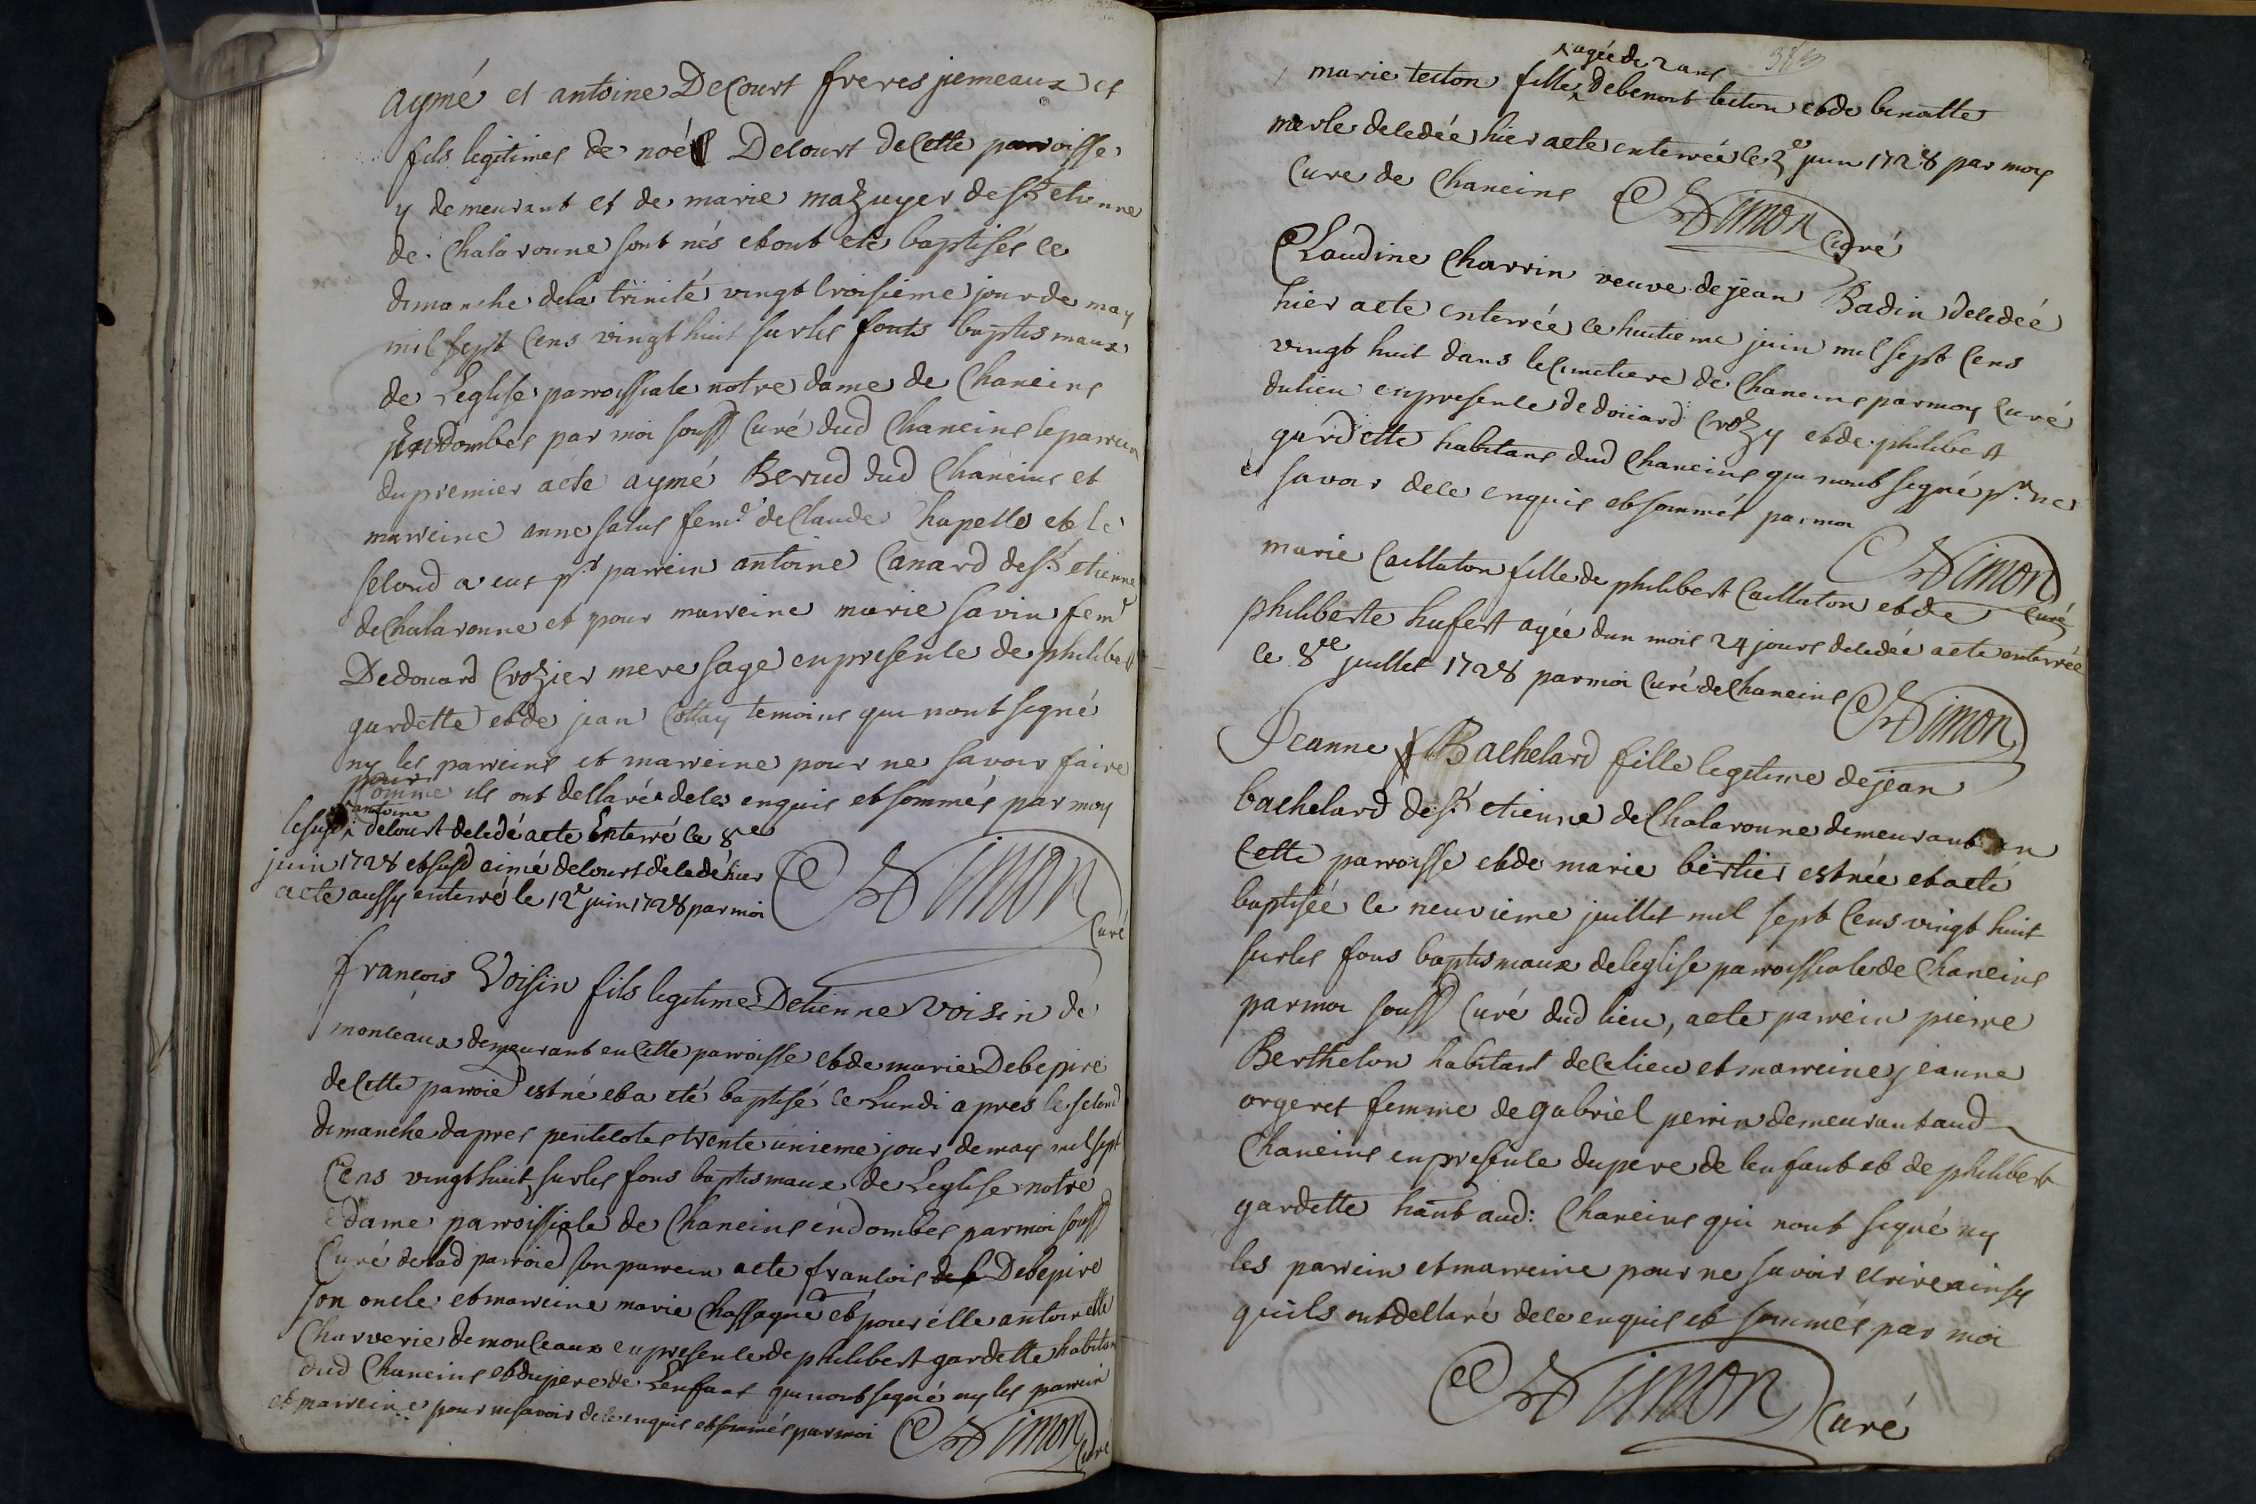 aymé et antoine Decourt freres jemeaux et
fils legitimes de noél Decourt de cette parroisse
y demeurant et de marie mazuyer de st etienne
de Chalaronne sont nés et ont eté baptisés le
dimanche de la trinité vingt troisieme jour de may
mil sept cens vingt huit sur les fonts baptismaux
de L'eglise parroissiale notre dame de Chaneins
en Dombes par moi souss Curé dud Chaneins le parrein
du premier a eté aymé Berud dud Chaneins et
marreine anne salus feme de Claude Chapelle et le
second a eut pr parrein antoine Canard de st etienne
de Chalaronne et pour marreine marie savin feme
Dedouard Crozier mere sage en presence de philibert
gardette et de jean Cottay temoins qui nont signé
ny les parreins et marreine pour ne savoir faire
comme ils ont declaré de ce enquis et sommés par moy
le susd antoine decourt decedé a eté Enterré le 8e
juin 1728 et susd aimé decourt decedé hier
a eté aussy enterré le 12e juin 1728 par moi
Simon Curé
françois Voisin fils legitime Detienne Voisin de
monceaux demeurant en cette parroisse et de marie Debepire
de cette parroie est né et a eté baptisé le Lundi apres le second
dimanche dapres pentecote trente unieme jour de may mil sept
Cens vingt huit sur les fons baptismaux de L'eglise notre
dame parroissiale de Chaneins en dombes par moi souss
Curé de lad parroie son parrein a eté francois Debepire
son oncle et marreine marie Chassagne et pour elle antoinette
Charverie de monceaux en presence de philibert gardette habitan
dud Chaneins et du pere de L'enfant qui nont signé ny les parrein
et marreine pour ne savoir de ce enquis et sommés par moi
Simon Curé
agée de 2 ans
marie teston fille de benoit teston et de benoitte
merle decedée hier a eté enterrée le 3e juin 1728 par moy
Cure de Chaneins Simon Curé
Claudine Charrin veuve de jean Badin decedeé
hier a eté enterrée le huitieme juin mil sept cens
vingt huit dans le cimetiere de Chaneins par moy Curé
du lieu en presence dedoüard Crozy et de philibert
gardette habitans dud Chaneins qui nont signé pr ne
savoir de ce enquis et sommés par moi
Simon Curé
marie Caillaton fille de philibert Caillaton et de
philiberte hufert agée dun mois 24 jours decedée a eté enterrée
le 8e juillet 1728 par moi Curé de Chaneins Simon
Jeanne Bachelard fille legitime de jean
bachelard de st etienne de Chalaronne demeurant en
cette parroisse et de marie bertier est née et a eté
baptisée le neuvieme juillet mil sept Cens vingt huit
sur les fons baptismaux de leglise parroissiale de Chaneins
par moi souss Curé dud lieu, a eté parrein pierre
Berthelon habitant de ce lieu et marreine jeanne
orgeret femme de gabriel perrin demeurant aud
Chaneins en presence du pere de lenfant et de philibert
gardette hant aud: Chaneins qui nont signé ny
les parrein et marreine pour ne savoir ecrire ainsy
quils ont declaré de ce enquis et sommés par moi
Simon Curé